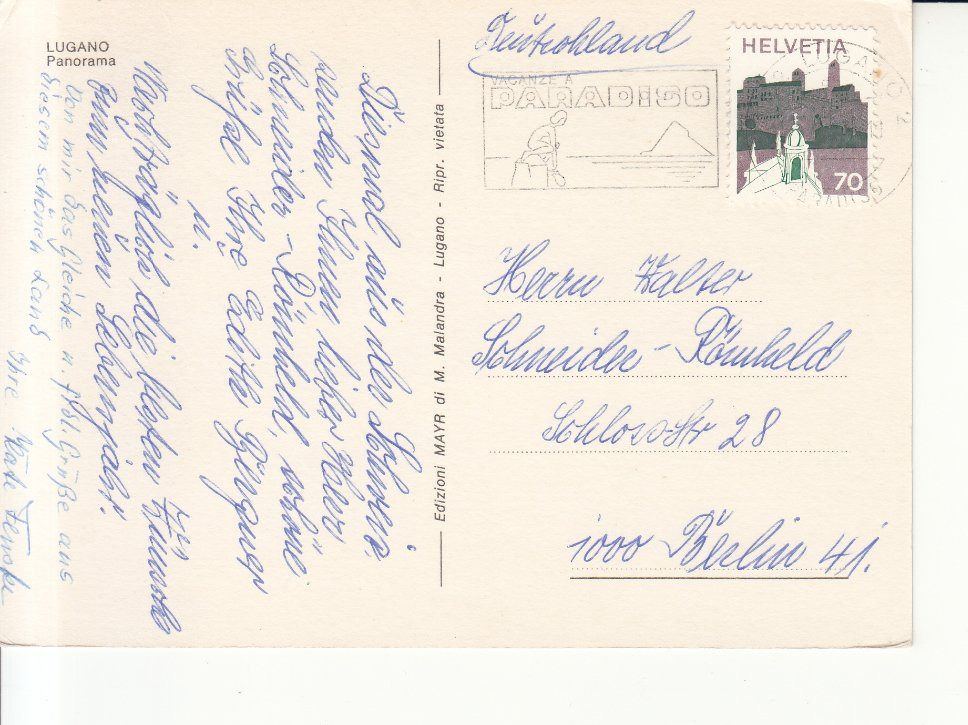 LUGANO
Panorama
Diesmal aus der Schweiz
senden Ihnen, lieber Herr
Schneider-Römheld, schöne
Grüße Ihre Edith
u.
Nachträglich die besten Wünsche
zum neuen Lebensjahr!
Von mir das Gleiche u. frdl. Grüße aus
diesem schönen Land
Ihre Käte
Edizioni MAYR di M. Malandra - Lugano - Ripr. vietata
Deutschland
VACANZE A
PARADISO
HELVETIA
70
LUGANO 2
PARADISO
Herrn Walter
Schneider-Römheld
Schloss-Str 28
1000 Berlin 41.